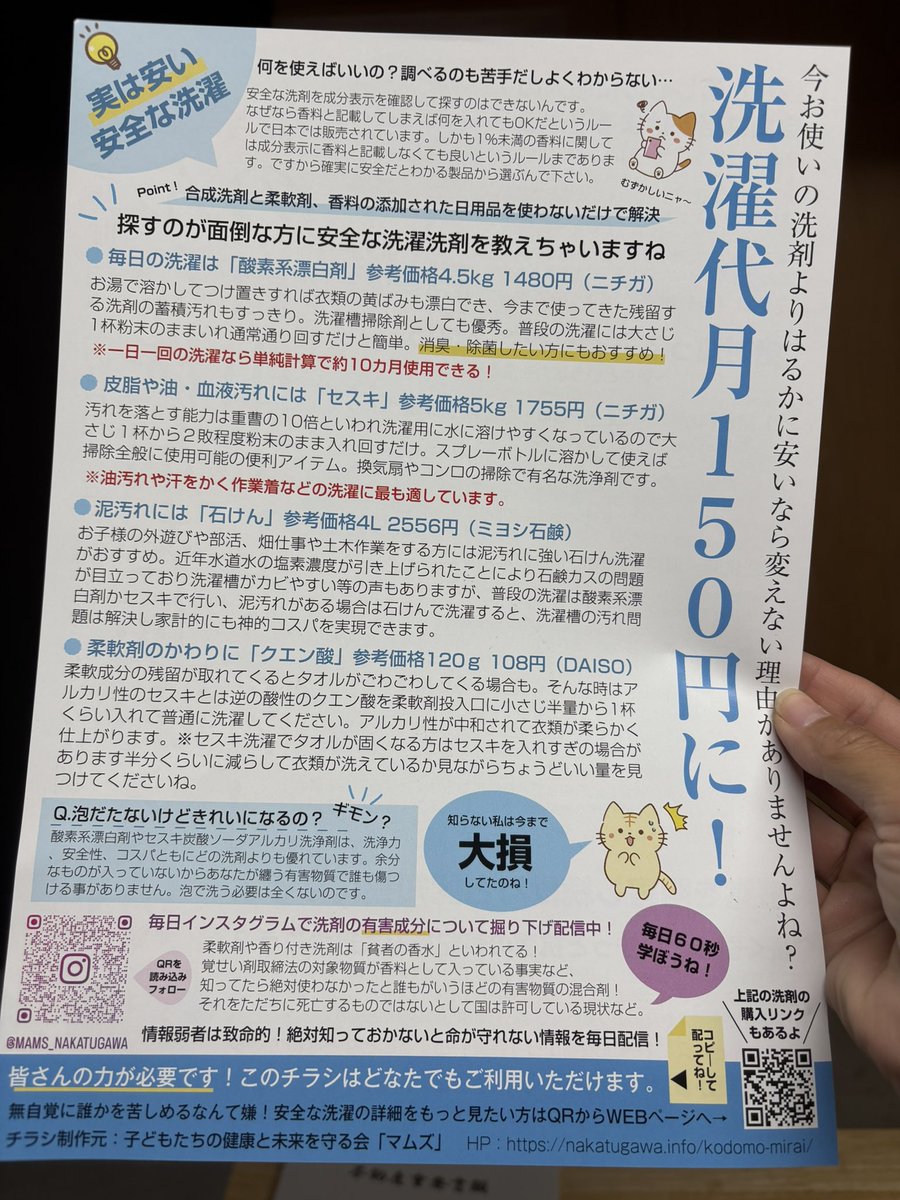 今お使いの洗剤よりはるかに安いなら変えない理由がありませんよね?
洗濯代月150円に!
実は安い
安全な洗濯
何を使えばいいの?調べるのも苦手だしよくわからない…
安全な洗剤を成分表示を確認して探すのはできないんです。
なぜなら香料と記載してしまえば何を入れてもOKだというルー
ルで日本では販売されています。しかも1%未満の香料に関して
は成分表示に香料と記載しなくても良いというルールまでありま
す。ですから確実に安全だとわかる製品から選ぶんで下さい。
むずかしいニャ〜
Point!
合成洗剤と柔軟剤、香料の添加された日用品を使わないだけで解決
探すのが面倒な方に安全な洗濯洗剤を教えちゃいますね
●毎日の洗濯は「酸素系漂白剤」参考価格4.5kg 1480円(ニチガ)
お湯で溶かしてつけ置きすれば衣類の黄ばみも漂白でき、今まで使ってきた残留す
る洗剤の蓄積汚れもすっきり。洗濯槽掃除剤としても優秀。普段の洗濯には大さじ
1杯粉末のままいれ通常通り回すだけと簡単。消臭・除菌したい方にもおすすめ!
※一日一回の洗濯なら単純計算で約10カ月使用できる!
●皮脂や油・血液汚れには「セスキ」参考価格5kg 1755円(ニチガ)
汚れを落とす能力は重曹の10倍といわれ洗濯用に水に溶けやすくなっているので大
さじ1杯から2敗程度粉末のまま入れ回すだけ。スプレーボトルに溶かして使えば
掃除全般に使用可能の便利アイテム。換気扇やコンロの掃除で有名な洗浄剤です。
※油汚れや汗をかく作業着などの洗濯に最も適しています。
●泥汚れには「石けん」参考価格4L 2556円(ミヨシ石鹸)
お子様の外遊びや部活、畑仕事や土木作業をする方には泥汚れに強い石けん洗濯
がおすすめ。近年水道水の塩素濃度が引き上げられたことにより石鹸カスの問題
が目立っており洗濯槽がカビやすい等の声もありますが、普段の洗濯は酸素系漂
白剤かセスキで行い、泥汚れがある場合は石けんで洗濯すると、洗濯槽の汚れ問
題は解決し家計的にも神的コスパを実現できます。
●柔軟剤のかわりに「クエン酸」参考価格120g 108円(DAISO)
柔軟成分の残留が取れてくるとタオルがごわごわしてくる場合も。そんな時はア
ルカリ性のセスキとは逆の酸性のクエン酸を柔軟剤投入口に小さじ半量から1杯
くらい入れて普通に洗濯してください。アルカリ性が中和されて衣類が柔らかく
仕上がります。※セスキ洗濯でタオルが固くなる方はセスキを入れすぎの場合が
あります半分くらいに減らして衣類が洗えているか見ながらちょうどいい量を見
つけてくださいね。
Q.泡だたないけどきれいになるの?ギモン?
酸素系漂白剤やセスキ炭酸ソーダアルカリ洗浄剤は、洗浄力
、安全性、コスパともにどの洗剤よりも優れています。余分
なものが入っていないからあなたが纏う有害物質で誰も傷つ
ける事がありません。泡で洗う必要は全くないのです。
知らない私は今まで
大損
してたのね!
毎日インスタグラムで洗剤の有害成分について掘り下げ配信中!
QRを
読み込み
フォロー
柔軟剤や香り付き洗剤は「貧者の香水」といわれてる!
覚せい剤取締法の対象物質が香料として入っている事実など、
知ってたら絶対使わなかったと誰もがいうほどの有害物質の混合剤!
それをただちに死亡するものではないとして国は許可している現状など。
毎日60秒
学ぼうね!
@MAMS_NAKATUGAWA
情報弱者は致命的!絶対知っておかないと命が守れない情報を毎日配信!
コピーして
配ってね!
上記の洗剤の
購入リンク
もあるよ
皆さんの力が必要です!このチラシはどなたでもご利用いただけます。
無自覚に誰かを苦しめるなんて嫌!安全な洗濯の詳細をもっと見たい方はQRからWEBページへ→
チラシ制作元:子どもたちの健康と未来を守る会「マムズ」 HP:https://nakatugawa.info/kodomo-mirai/